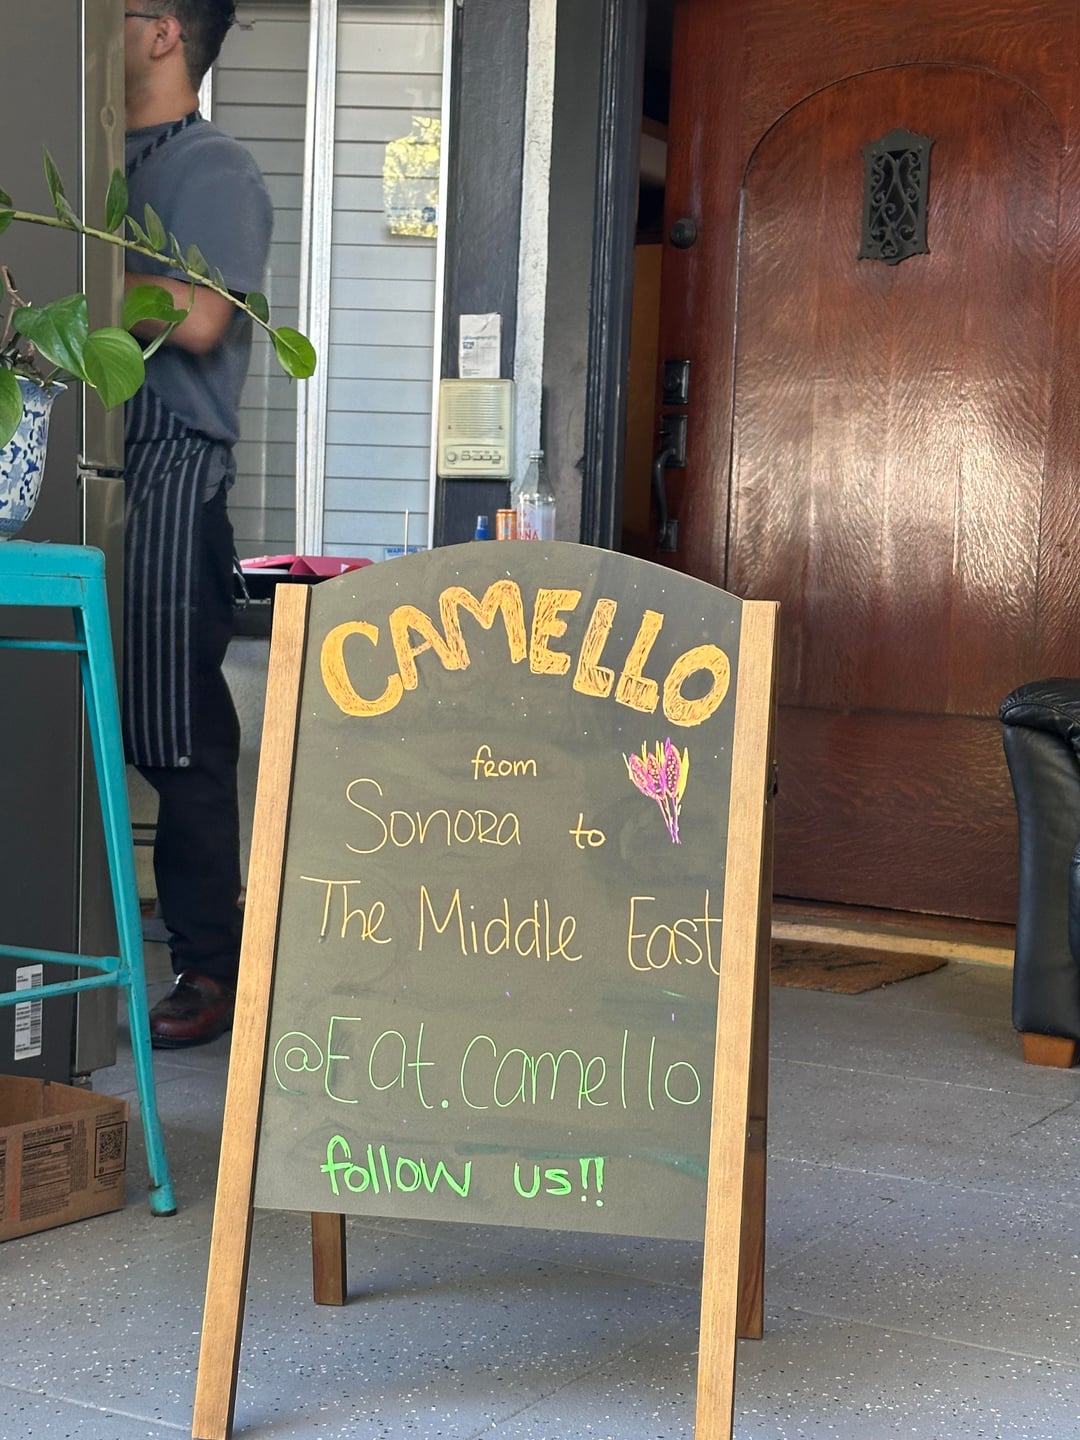 CAMELLO
from
Sonora to
The Middle East
@Eat.Camello
follow us!!
WARNING